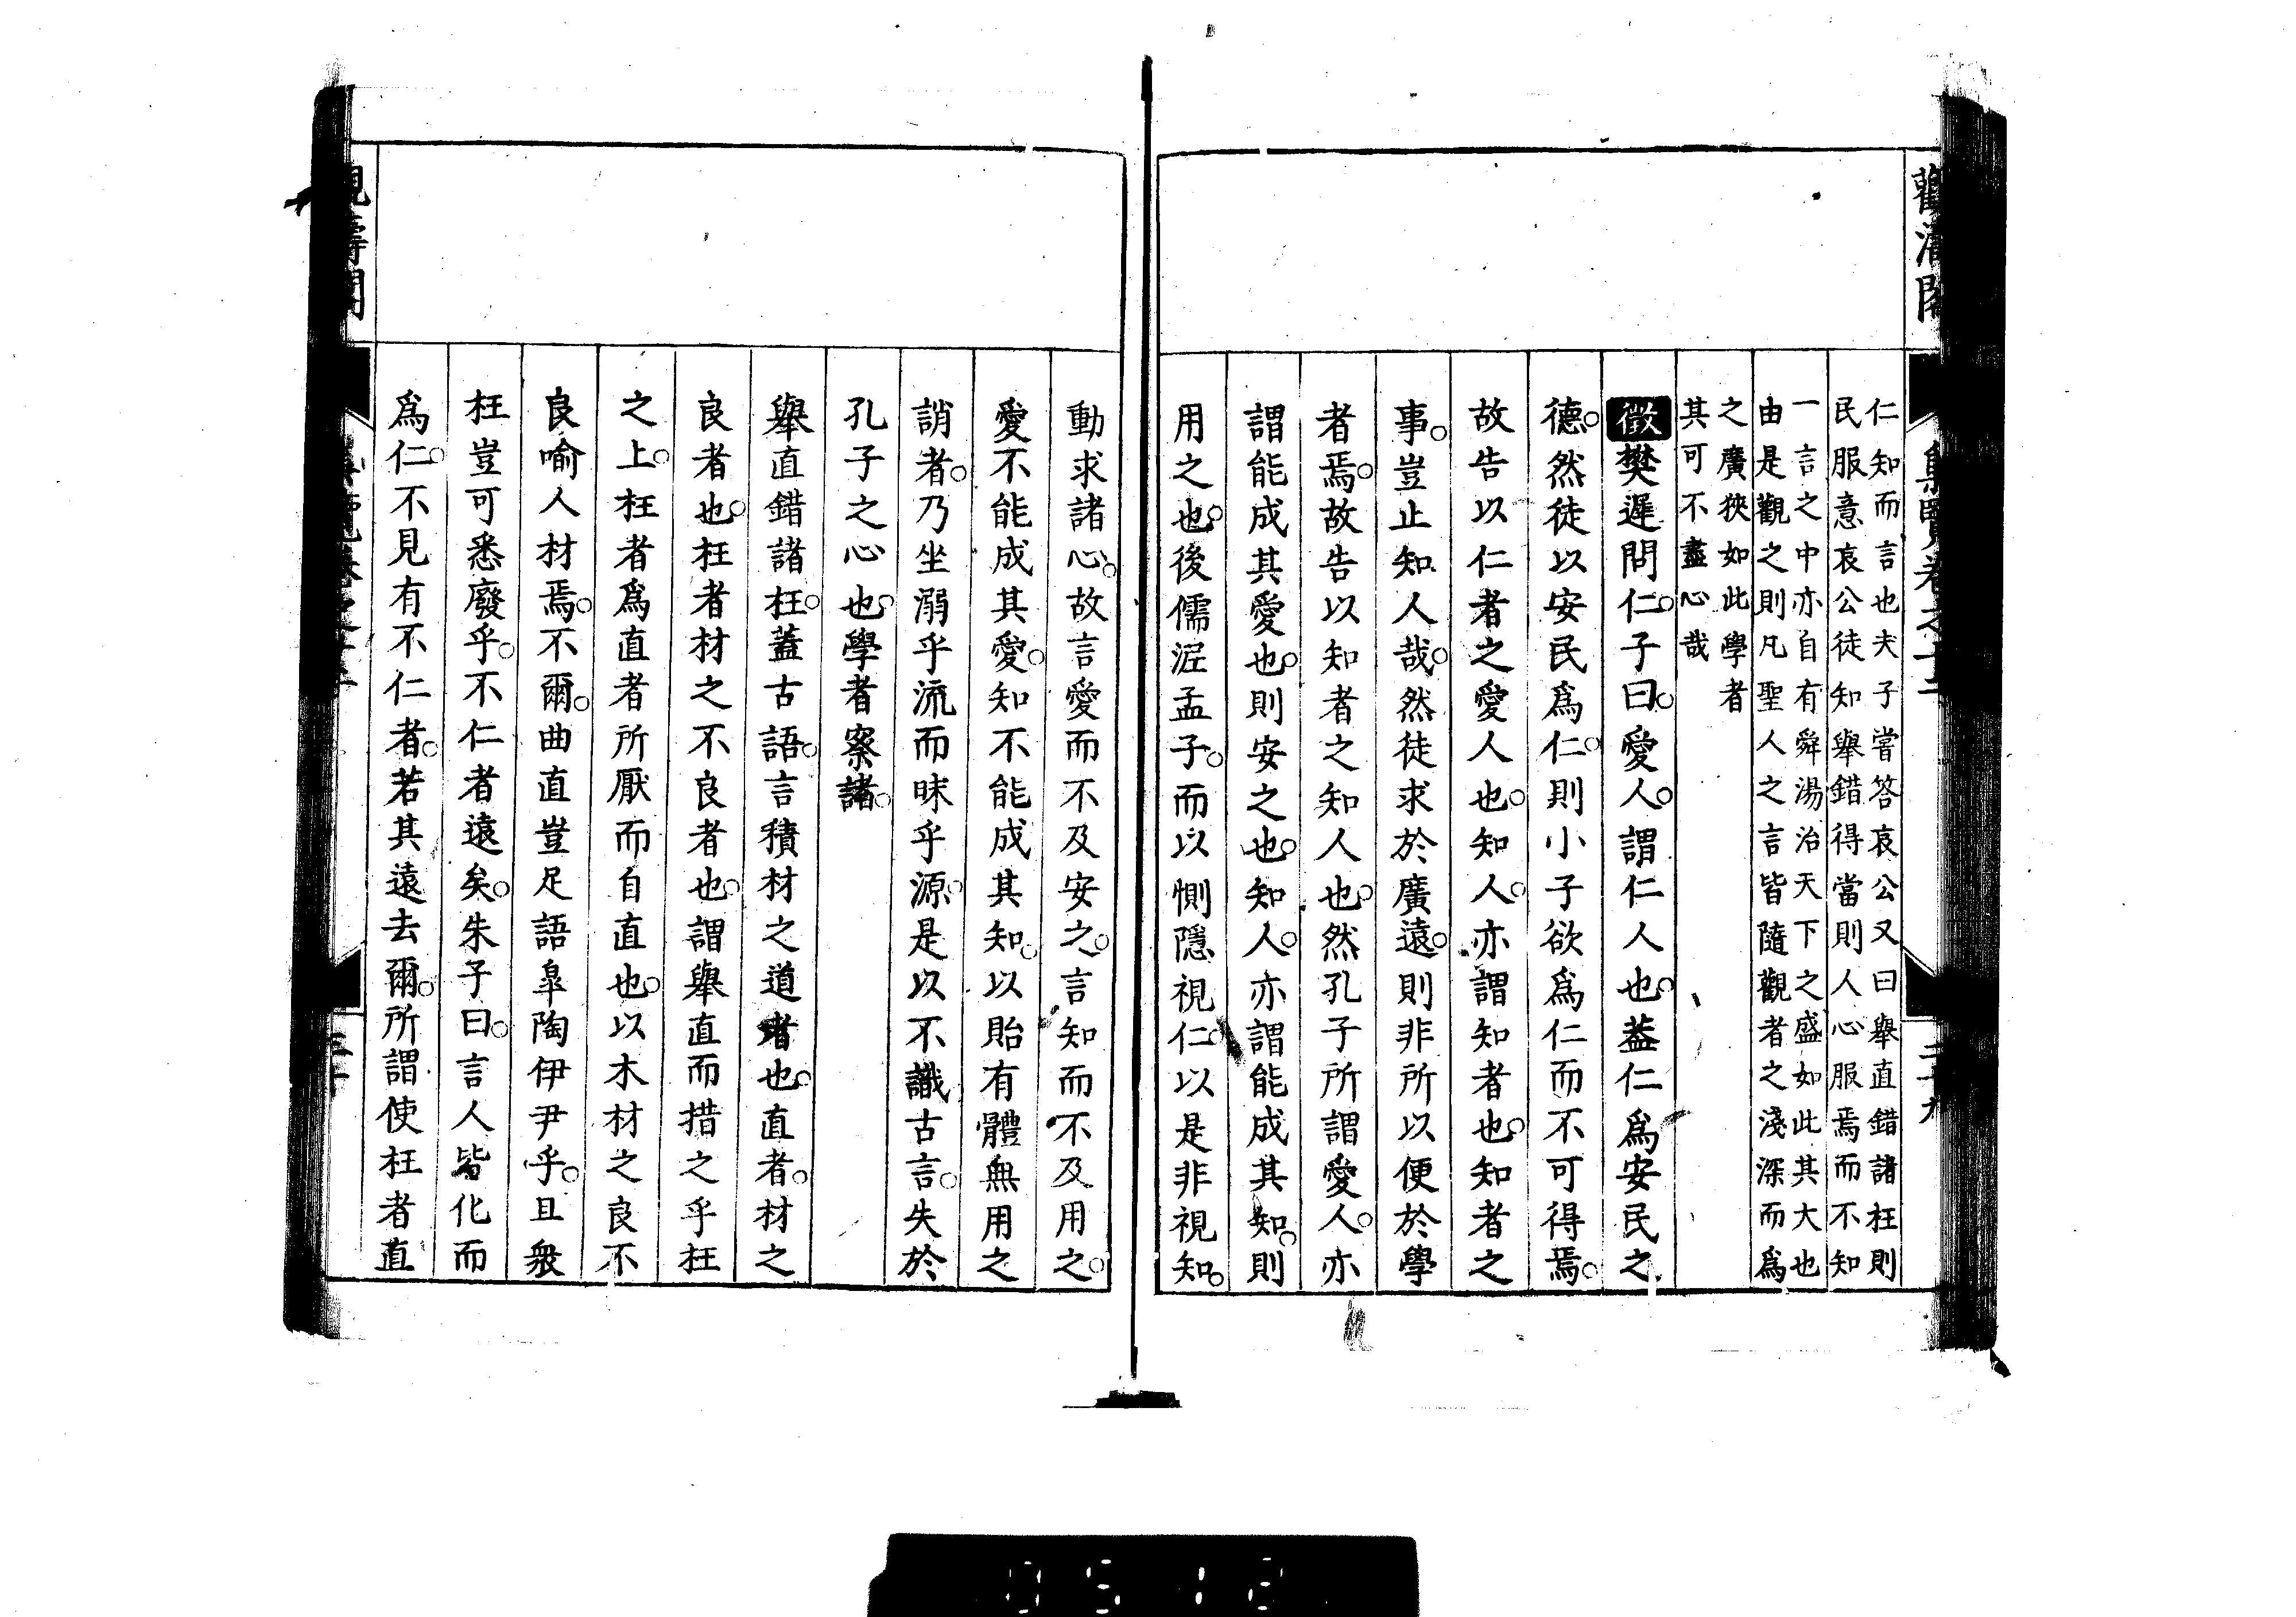 仁知而言也夫子嘗答哀公又曰舉直錯諸枉則
民服意哀公徒知舉錯得當則人心服焉而不知
一言之中亦自有舜湯治天下之盛如此其大也
由是觀之則凡聖人之言皆隨觀者之淺深而爲
之廣狹如此學者
其可不盡心哉
徵樊遲問仁○子曰○愛人○謂仁人也○蓋仁爲安民之
德○然徒以安民爲仁○則小子欲爲仁而不可得焉○
故告以仁者之愛人也○知人○亦謂知者也○知者之
事○豈止知人哉○然徒求於廣遠○則非所以便於學
者焉○故告以知者之知人也○然孔子所謂愛人○亦
謂能成其愛也○則安之也○知人○亦謂能成其知○則
用之也○後儒泥孟子○而以惻隱視仁○以是非視知○
動求諸心○故言愛而不及安之○言知而不及用之○
愛不能成其愛○知不能成其知○以貽有體無用之
誚者○乃坐溺乎流而昧乎源○是以不識古言○失於
孔子之心也○學者察諸○
舉直錯諸枉○蓋古語○言積材之道者也○直者○材之
良者也○枉者材之不良者也○謂舉直而措之乎枉
之上○枉者爲直者所厭而自直也○以木材之良不
良喻人材焉○不爾○曲直豈足語皐陶伊尹乎○且衆
枉豈可悉廢乎○不仁者遠矣○朱子曰○言人皆化而
爲仁○不見有不仁者○若其遠去爾○所謂使枉者直